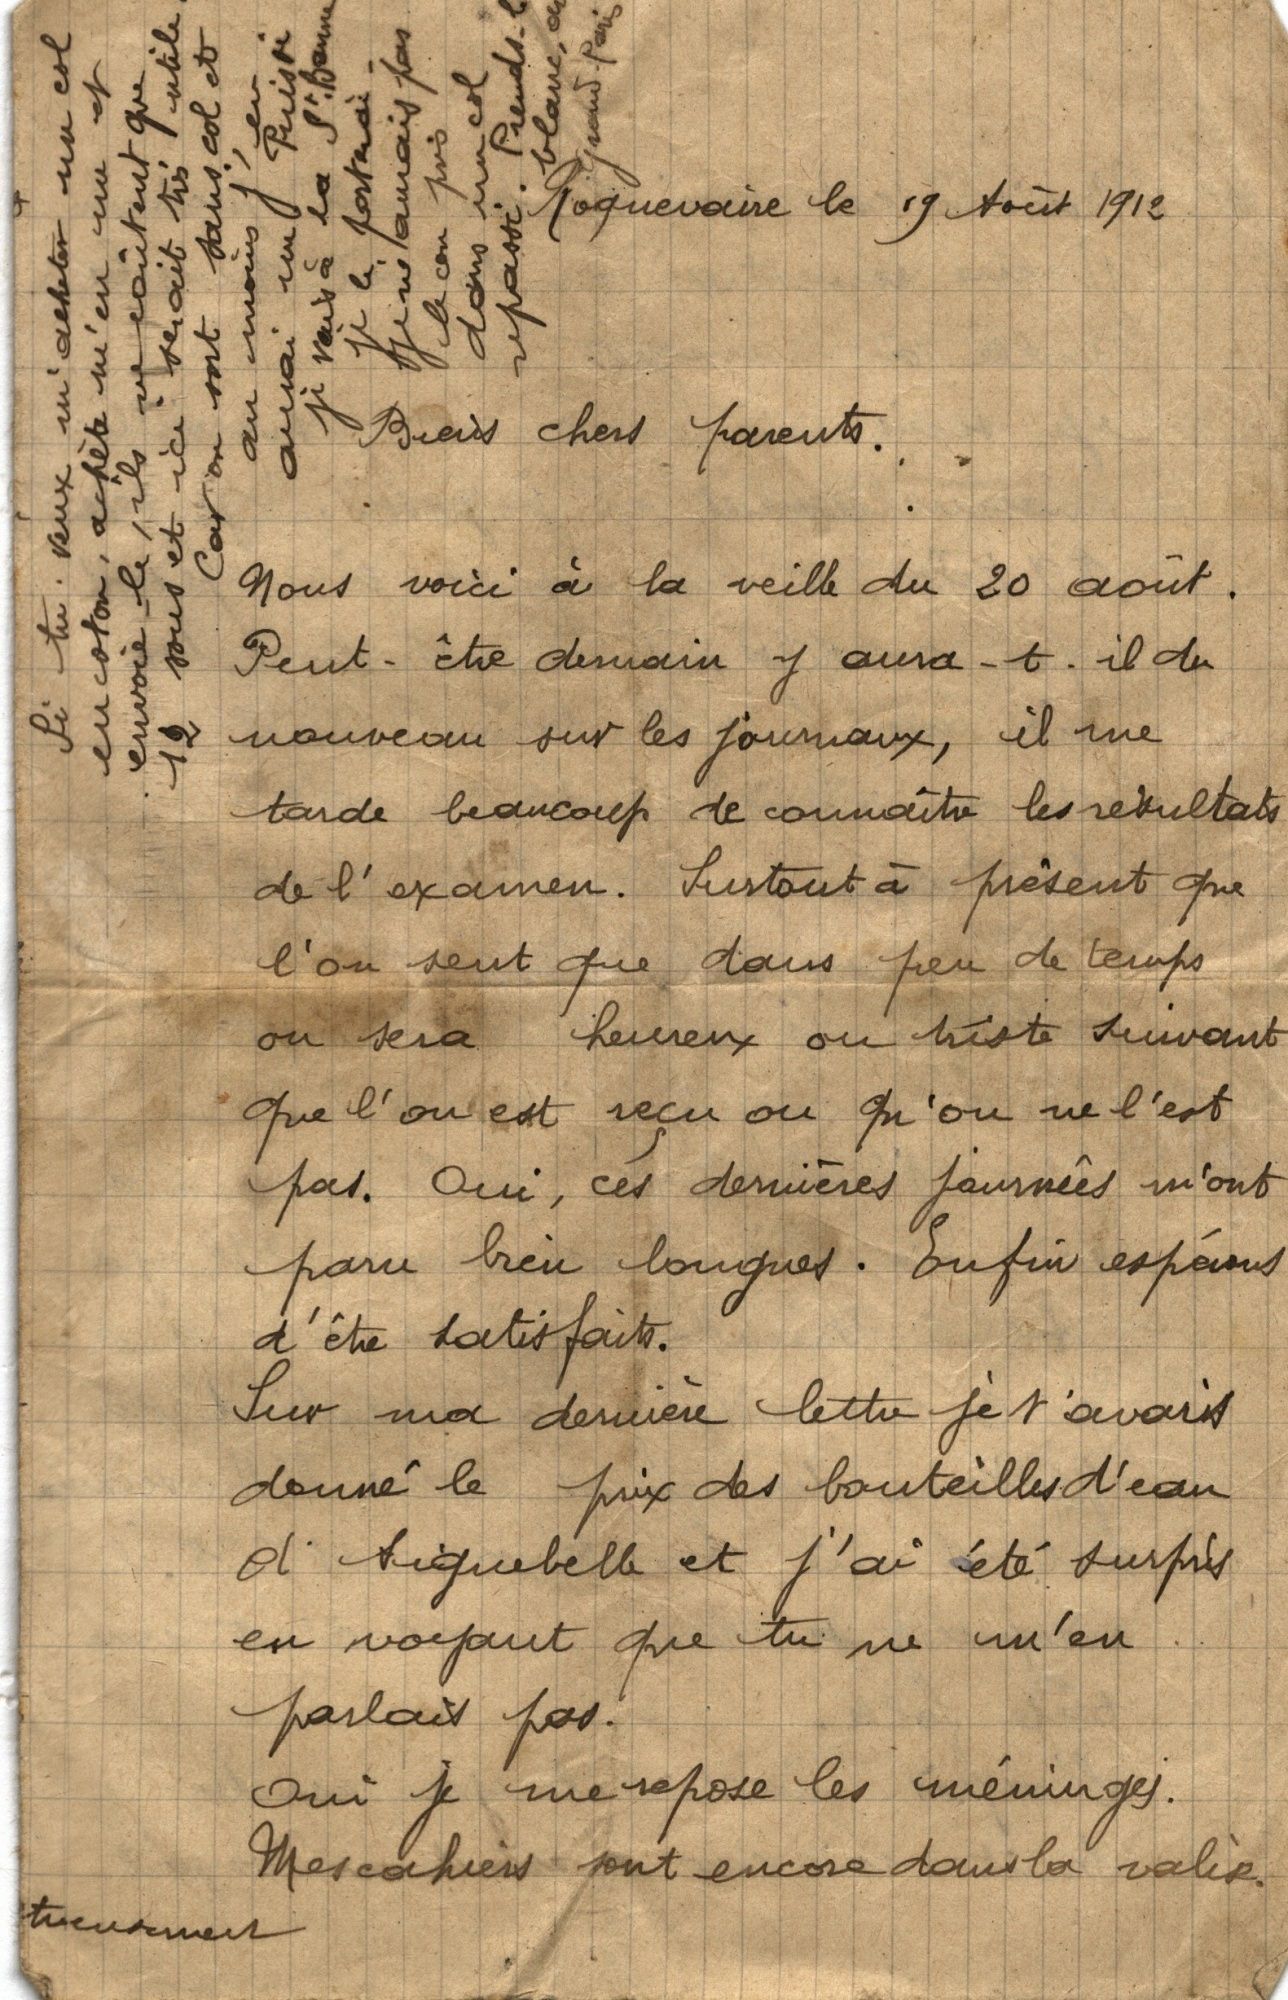 Roquevaire le 19 Août 1912
Biens chers parents.
Nous voici à la veille du 20 août.
Peut-être demain y aura-t-il du
nouveau sur les journaux, il me
tarde beaucoup de connaître les résultats
de l'examen. Surtout à présent que
l'on sent que dans peu de temps
on sera heureux ou triste suivant
que l'on est reçu ou qu'on ne l'est
pas. Oui, ces dernières journées m'ont
paru bien longues. Enfin espérons
d'être satisfaits.
Sur ma dernière lettre je t'avais
donné le prix des bouteilles d'eau
d'Aiguebelle et j'ai été surpris
en voyant que tu ne m'en
parlais pas.
Oui je me repose les méninges.
Mes cahiers sont encore dans la valise.
tueusement
Si tu veux m'acheter un col
en coton, achète m'en un et
envoie-le, ils ne coûtent que
12 sous et ici serait très utile.
Car on sort sans col et
au moins j'en
aurai un. Puis si
je vais à la Ste Baume
je le porterai
je ne l'aurais pas
le cou pris
dans un col
repassé. Prends-l
blanc,
grand Paris